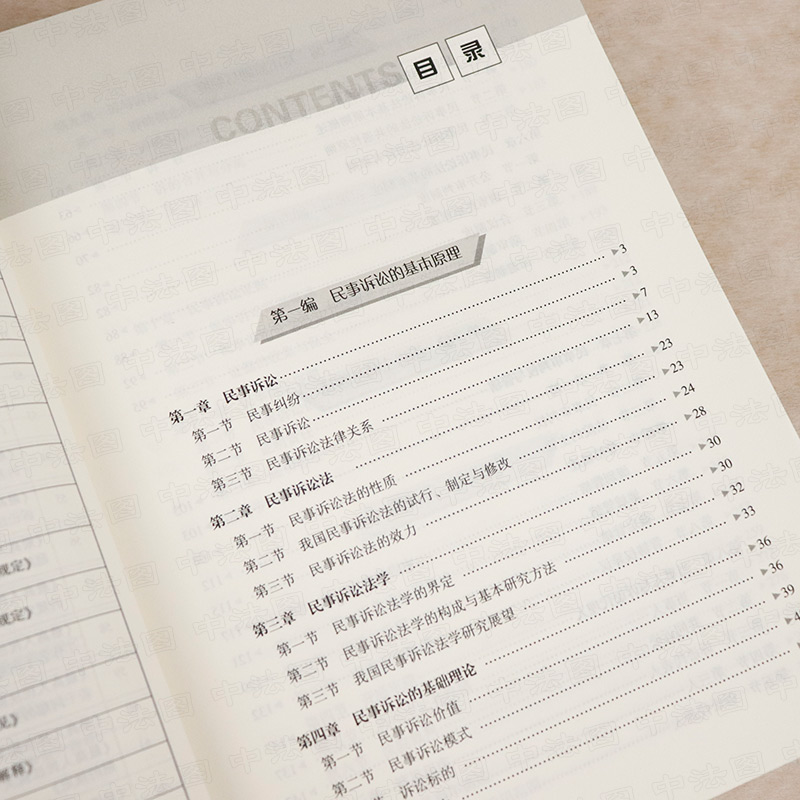 目录
CONTENTS
第一编 民事诉讼的基本原理
第一章 民事诉讼 ▶3
第一节 民事纠纷 ▶3
第二节 民事诉讼 ▶7
第三节 民事诉讼法律关系 ▶13
第二章 民事诉讼法 ▶23
第一节 民事诉讼法的性质 ▶23
第二节 我国民事诉讼法的试行、制定与修改 ▶24
第三节 民事诉讼法的效力 ▶28
第三章 民事诉讼法学 ▶30
第一节 民事诉讼法学的界定 ▶30
第二节 民事诉讼法学的构成与基本研究方法 ▶32
第三节 我国民事诉讼法学研究展望 ▶33
第四章 民事诉讼的基础理论 ▶36
第一节 民事诉讼价值 ▶36
第二节 民事诉讼模式 ▶39
节 诉讼标的 ▶4
规定》
规定》
见》
解释》
中法图